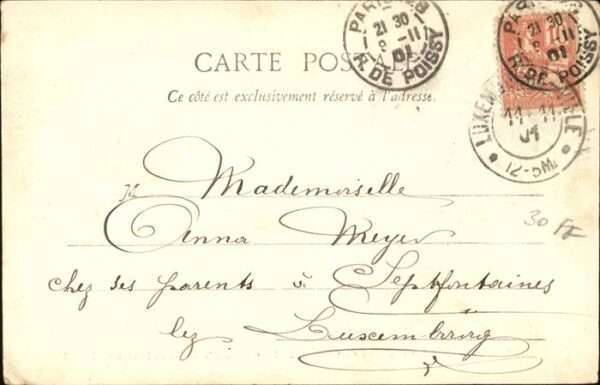 PARIS
21 30
9 -11
01
R. DE POISSY
PARIS
21 30
9 -11
01
R. DE POISSY
CARTE POSTALE
Ce côté est exclusivement réservé à l'adresse.
LUXEMBOURG VILLE
11-11
01
12-5M.
Mademoiselle
Anna Meyer
chez ses parents à Septfontaines
lez Luxembourg
30 FF